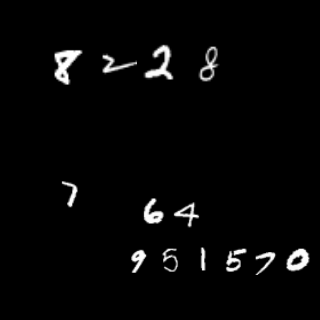 8 2 2 8
7
6 4
9 5 1 5 7 0